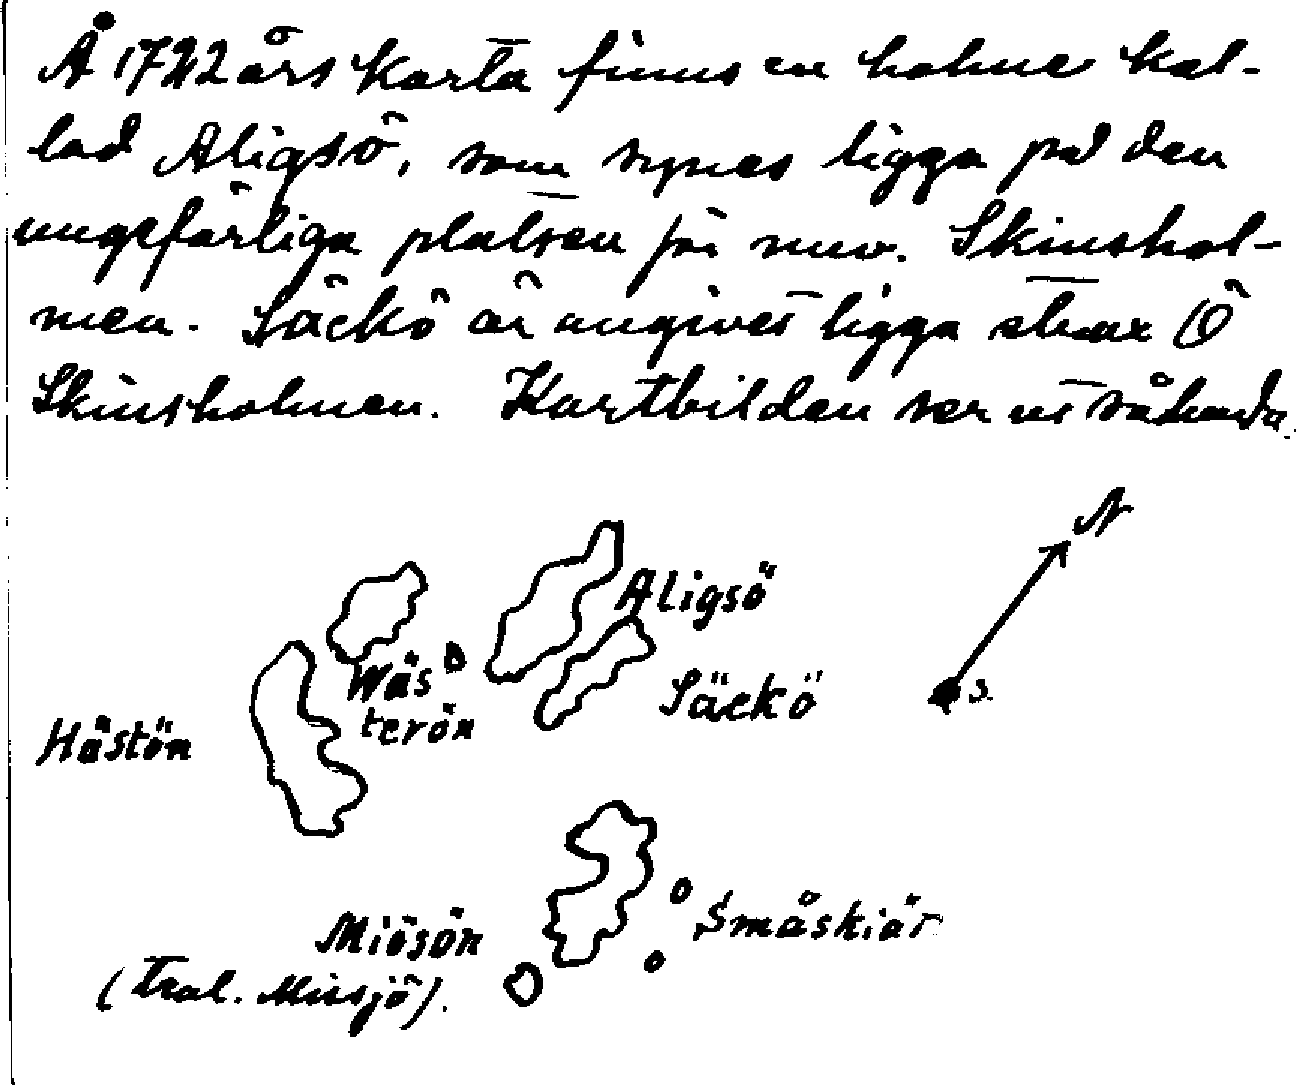 Å 1742 års karta finns en holme kal-
lad Aligsö, som synes ligga på den
ungefärliga platsen för nuv. Skinshol-
men. Säckö är angivet ligga strax Ö
Skinsholmen. Kartbilden ser ut såhanda.
N
Aligsö
Wäs
terön
Säckö
S.
Hästön
Småskiär
Miösön
(Tral. Missjö).